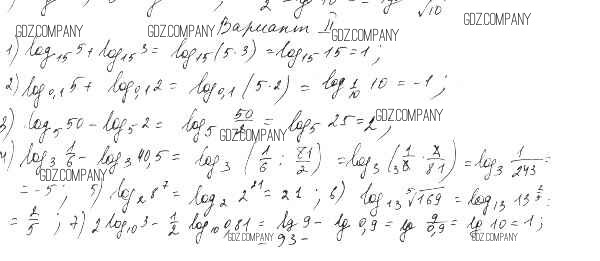 2 = lg √10
GDZ.COMPANY GDZ.COMPANY Вариант II GDZ.COMPANY GDZ.COMPANY
1) log₁₅ 5 + log₁₅ 3 = log₁₅ (5·3) = log₁₅ 15 = 1;
2) log₀,₁ 5 + log₀,₁ 2 = log₀,₁ (5·2) = log_{1/10} 10 = -1;
3) log₅ 50 - log₅ 2 = log₅ 50/2 = log₅ 25 = 2; GDZ.COMPANY
GDZ.COMPANY
4) log₃ 1/6 - log₃ 40,5 = log₃ (1/6 : 81/2) = log₃ (1/6 · 2/81) = log₃ 1/243 =
GDZ.COMPANY
= -5; 5) log₂ 8⁷ = log₂ 2²¹ = 21; 6) log₁₃ ⁵√169 = log₁₃ 13^{2/5} =
= 2/5; 7) 2 log₁₀ 3 - 1/2 log₁₀ 0,81 = lg 9 - lg 0,9 = lg 9/0,9 = lg 10 = 1;
GDZ.COMPANY GDZ.COMPANY